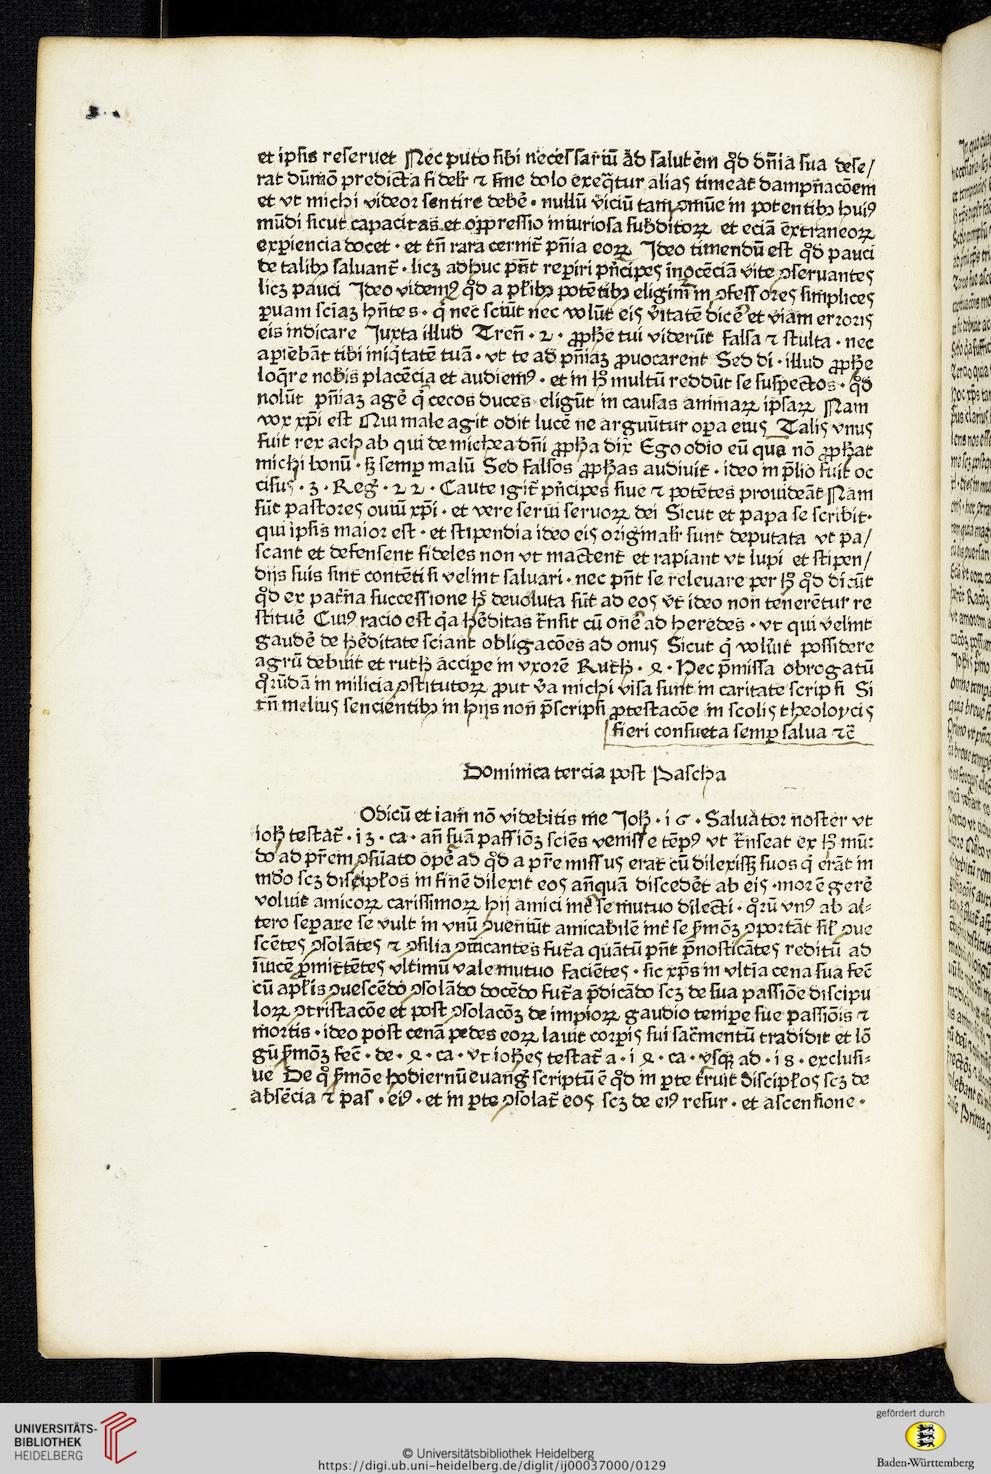 et ipsis reseruet Nec puto sibi necessariū ad salutem qd̄ dn̄ia sua dese/
rat dūmō predicta fideliter ⁊ sine dolo exeq̄tur alias timeat dampnacōem
et vt michi videor sentire debē · nullū viciū tam ꝯmūe in potentibꝫ huiꝰ
mūdi sicut capacitas et oppressio iniuriosa subditoꝝ et eciā extraneoꝝ
experiencia docet · et tn̄ rara cernit̄ pn̄ia eoꝝ Ideo timendū est qd̄ pauci
de talibꝫ saluant̄ · licꝫ adhuc pn̄t reperiri pn̄cipes īnocēciā vite ꝯseruantes
licꝫ pauci Ideo videmꝰ qd̄ a pl̄ibꝫ potētibꝫ eligim̄ in ꝯfessores simplices
ꝑuam sciaꝫ hn̄tes · q̄ nec sciūt nec volūt eis v̄itatē dicē et viam erroris
eis indicare Iuxta illud Tren̄ · 2 · ꝓphe tui viderūt falsa ⁊ stulta · nec
apiebāt tibi iniq̄tatē tuā · vt te ad pn̄iaꝫ ꝓuocarent Sed di · illud ꝓphe
loq̄re nobis placēcia et audiemꝰ · et in hͦ multū reddūt se suspectos · qd̄
nolūt pn̄iaꝫ agē q̄ cecos duces eligūt in causas animaꝝ ipsaꝝ Nam
vox xp̄i est Qui male agit odit lucē ne arguūtur oꝑa eius Talis vnus
fuit rex achab qui de michea dn̄i ꝓpha dix̄ Ego odio eū qua nō ꝓphat
michi bonū · sꝫ semꝑ malū Sed falsos ꝓphas audiuit · ideo in p̄lio fuit oc
cisus · 3 · Reḡ · 22 · Caute igit̄ pn̄cipes siue ⁊ potētes prouideāt Nam
sūt pastores ouiū xp̄i · et vere serui seruoꝝ dei Sicut et papa se scribit ·
qui ipsis maior est · et stipendia ideo eis originalr̄ sunt deputata vt pa/
scant et defensent fideles non vt mactent et rapiant vt lupi et stipen/
dijs suis sint contēti si velint saluari · nec pn̄t se releuare per hͦ qd̄ dicūt
qd̄ ex pat̄na successione hͨ deuoluta sūt ad eos vt ideo non tenerētur re
stituē Cuiꝰ racio est q̄a hēditas t̄nsit cū on̄e ad heredes · vt qui velint
gaudē de hēditate sciant obligacōes ad onus Sicut q̄ volūit possidere
agrū debuit et ruth accipe in vxorē Ruth · 4 · Hec p̄missa obrogatū
q̄rūdā in milicia ꝯstitutoꝝ ꝓut v̄a michi visa sunt in caritate scripsi Si
tn̄ melius sencientibꝫ in hijs non p̄scripsi ꝓtestacōe in scolis theoloycis
fieri consueta semꝑ salua ⁊c̄
Dominica tercia post Pascha
Odicū et iam nō videbitis me Joh̄ · 16 · Saluator noster vt
ioh̄ testat̄ · 13 · ca · an̄ suā passiōꝫ sciēs venisse tēpꝰ vt t̄nseat ex hͦ mū:
do ad p̄rem ꝯsūato opē ad qd̄ a p̄re missus erat cū dilexisꝫ suos q̄ erāt in
mdͦo scꝫ discipl̄os in finē dilexit eos an̄quā discedēt ab eis · morē gerē
voluit amicoꝝ carissimoꝝ hij amici int̄ se mutuo dilecti · q̄rū vnꝰ ab al-
tero separe se vult in vnū ꝯueniūt amicabilē int̄ se s̄mōꝫ ꝯportāt sil̄ ꝯue
scētes ꝯsolātes ⁊ ꝯsilia ꝯm̄icantes fut̄a quātū pn̄t p̄nosticātes reditū ad
īuicē p̄mittētes vltimū vale mutuo faciētes · sic xp̄s in vlt̄ia cena sua fec̄
cū apl̄is ꝯuescēdo ꝯsolādo docēdo fut̄a p̄dicādo scꝫ de sua passiōe discipu
loꝝ ꝯtristacōe et post ꝯsolacōꝫ de impioꝝ gaudio tempe sue passiōis ⁊
mortis · ideo post cenā pedes eoꝝ lauit corꝑis sui sac̄mentū tradidit et lō
gū s̄mōꝫ fec̄ · de · 4 · ca · vt iohes testat̄ a · 14 · ca · vsqꝫ ad · 18 · exclusi-
ue De qͦ s̄mōe hodiernū euanḡ scriptū ē qd̄ in ꝑte t̄ruit discipl̄os scꝫ de
absēcia ⁊ pas · eiꝰ · et in ꝑte ꝯsolat̄ eos scꝫ de eiꝰ resur · et ascensione ·
UNIVERSITÄTS-
BIBLIOTHEK
HEIDELBERG
© Universitätsbibliothek Heidelberg
https://digi.ub.uni-heidelberg.de/diglit/ij00037000/0129
gefördert durch
Baden-Württemberg